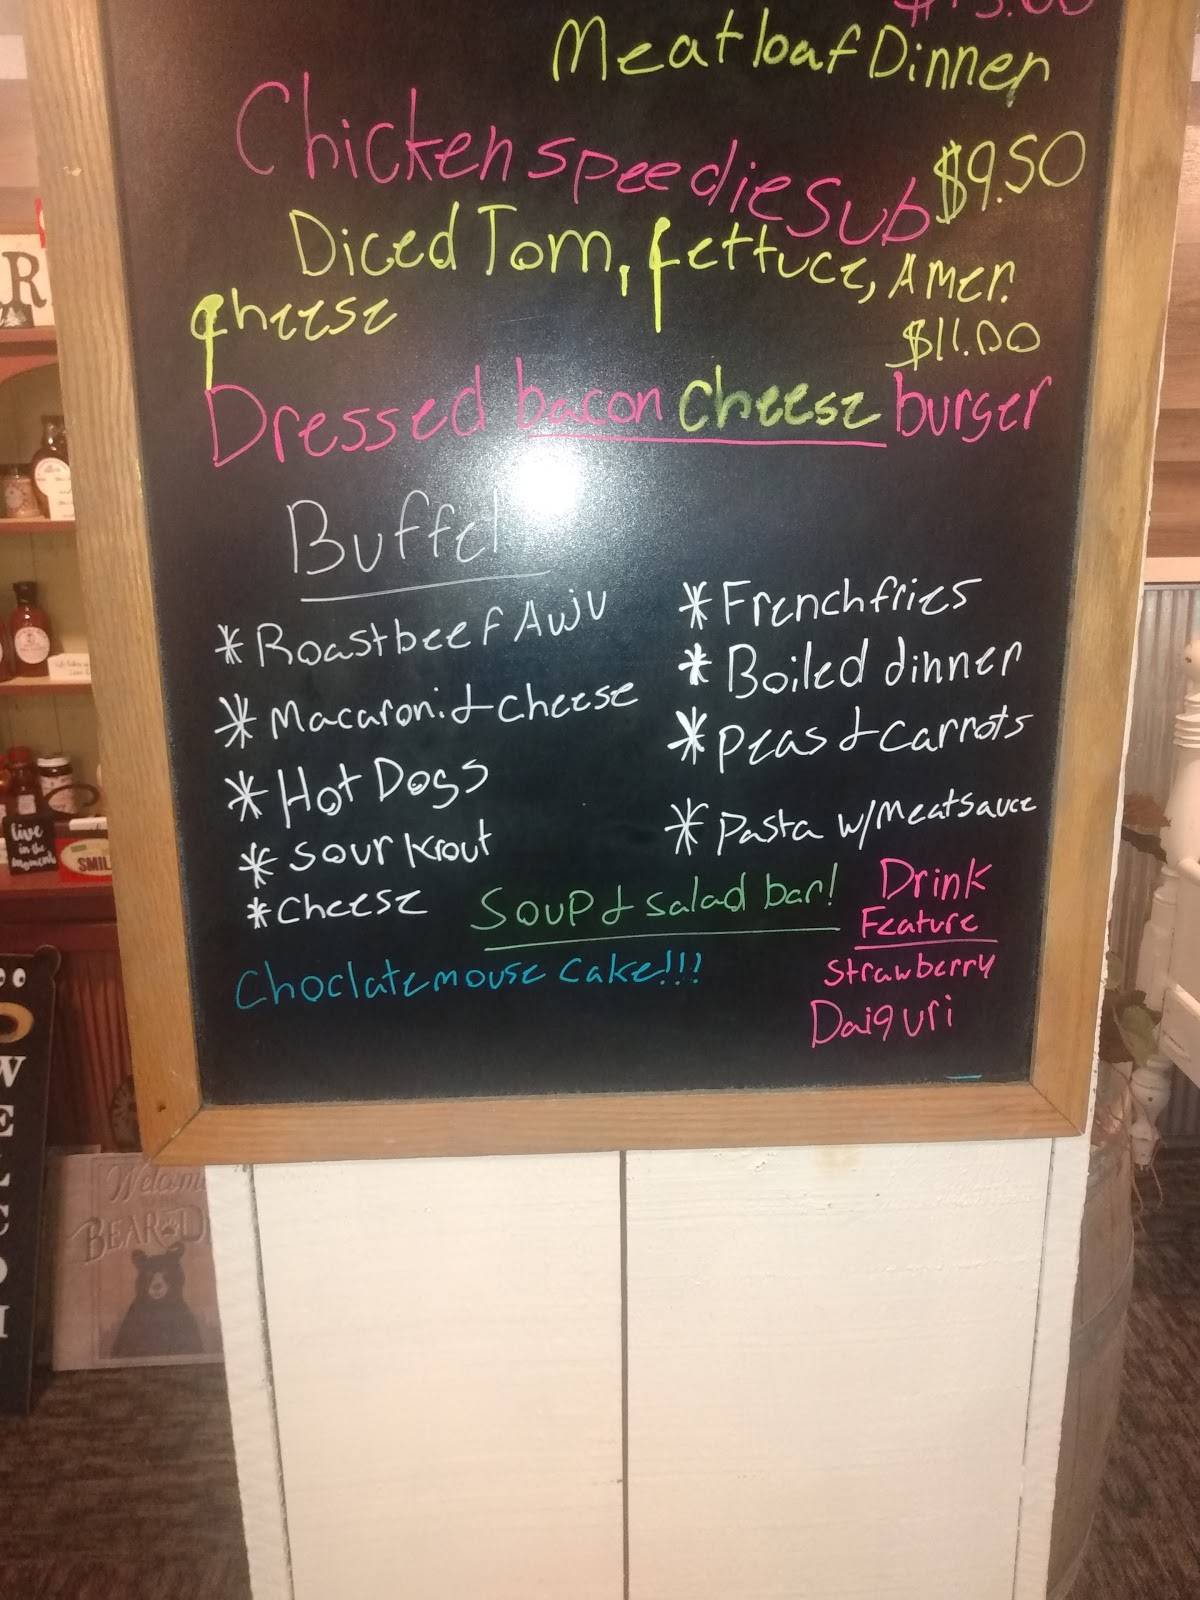 $13.00
Meatloaf Dinner
Chicken speedie Sub
$9.50
Diced Tom, fettuce, Amer.
Cheese
$11.00
Dressed bacon cheese burger
Buffet
* Roastbeef Awju
* Macaroni & cheese
* Hot Dogs
* Sour Krout
* Cheese
* French fries
* Boiled dinner
* Peas & Carrots
* Pasta w/Meatsauce
Soup & salad bar!
Choclate mouse cake!!!
Drink
Feature
Strawberry
Daiquri
R
live
in the
moment
SMIL
WELCOM
Welcom
BEAR